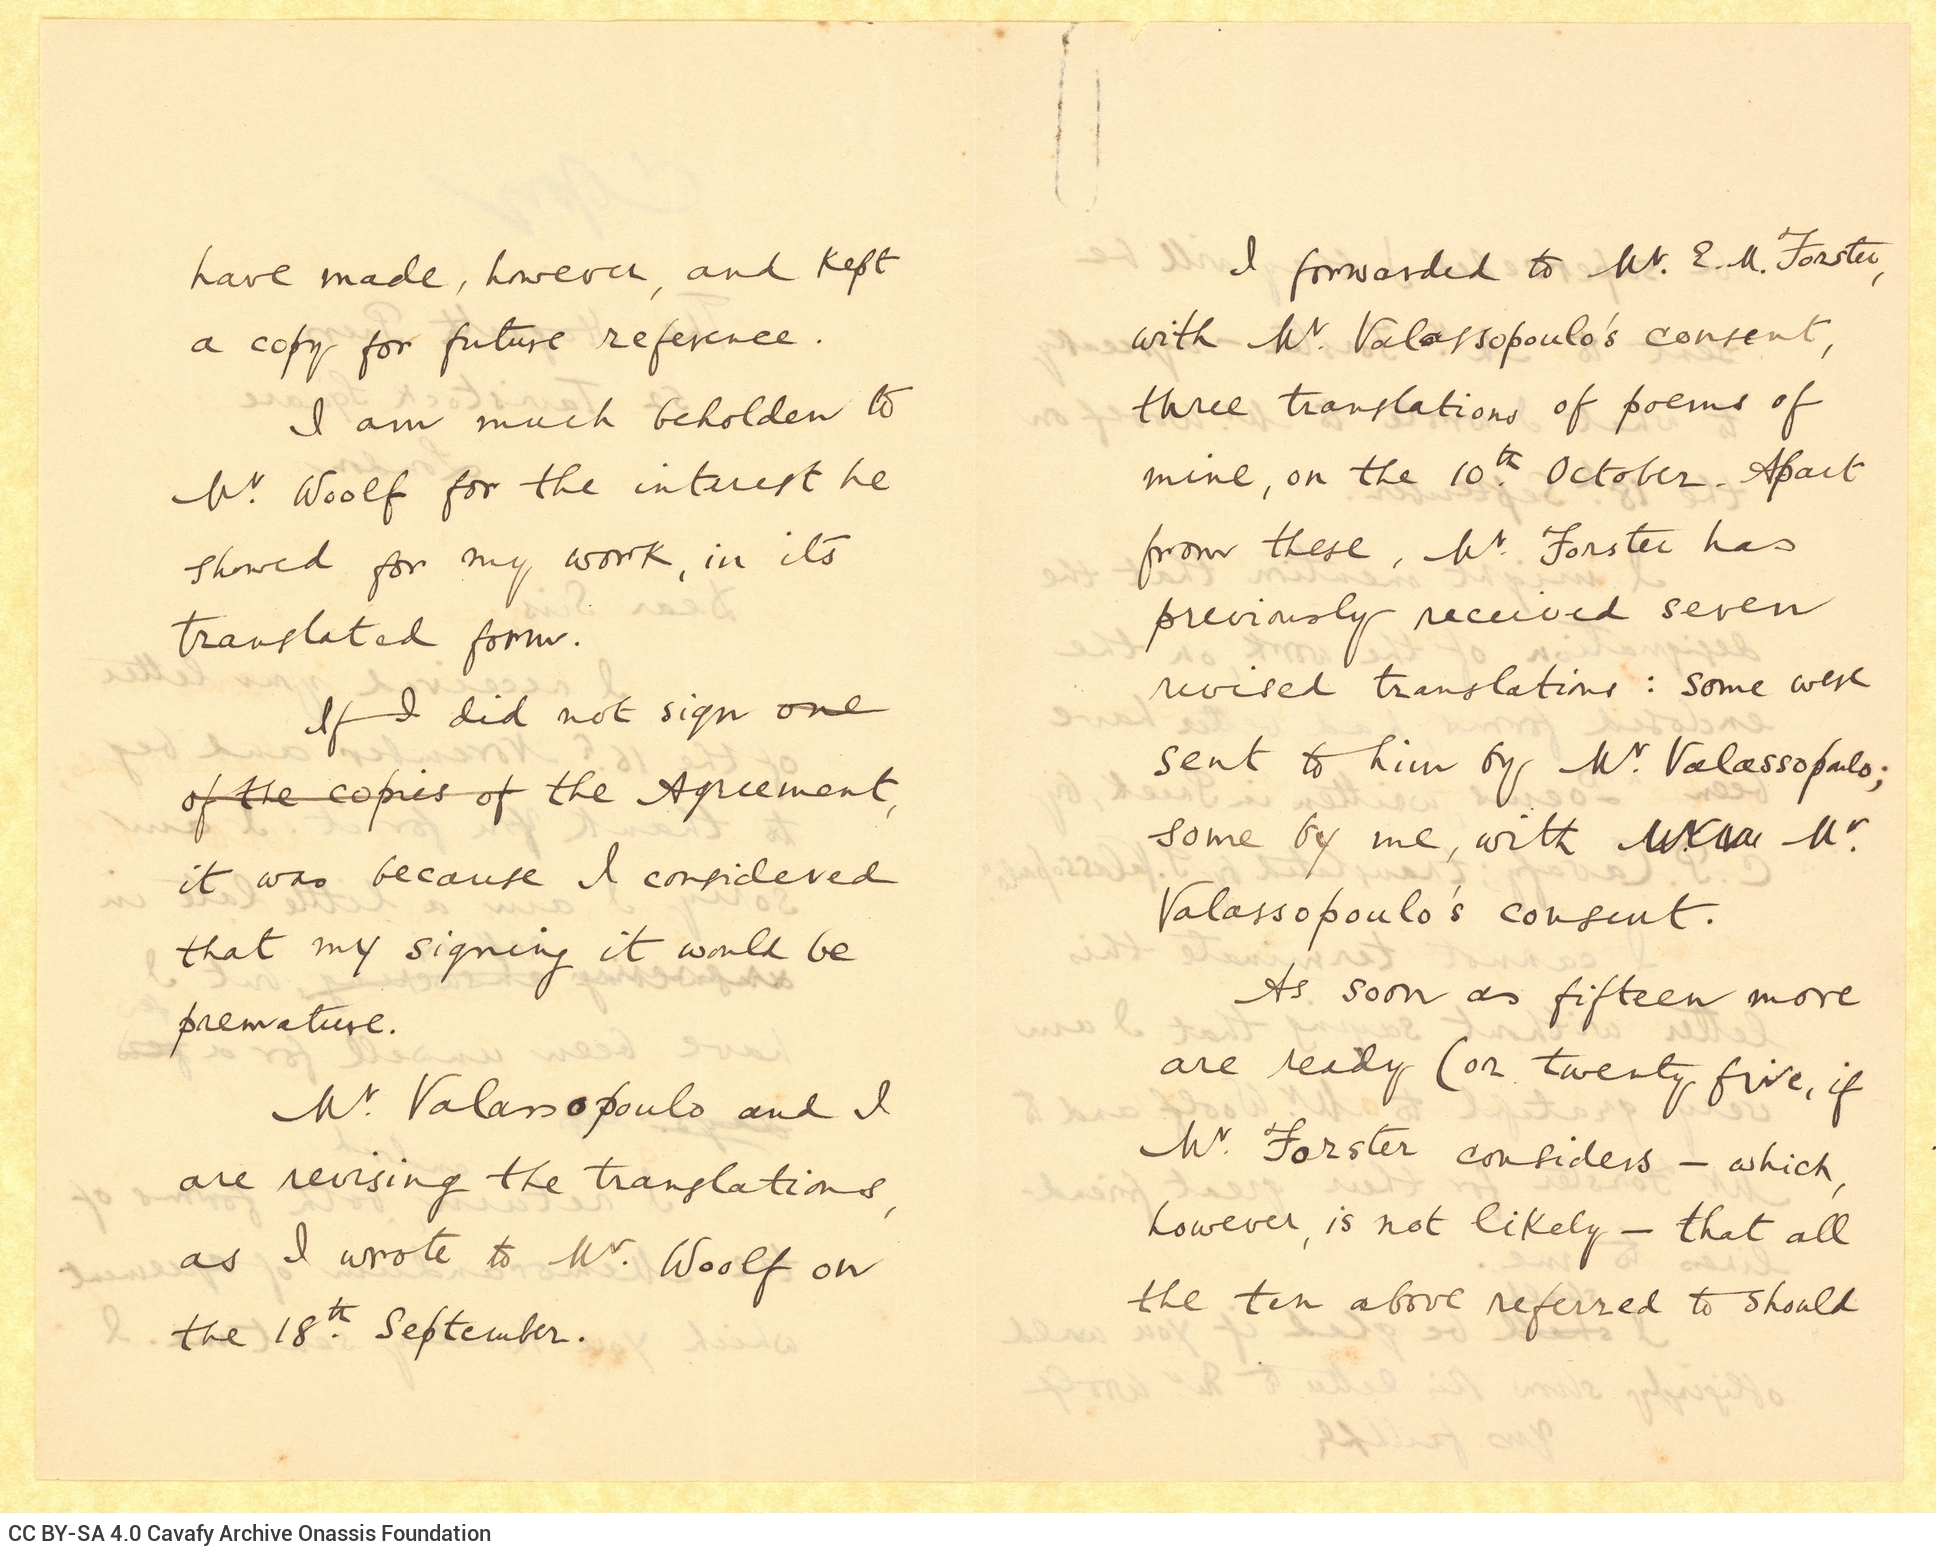 have made, however, and kept
a copy for future reference.
I am much beholden to
Mr. Woolf for the interest he
showed for my work, in its
translated form.
If I did not sign one
of the copies of the Agreement,
it was because I considered
that my signing it would be
premature.
Mr. Valassopoulo and I
are revising the translations,
as I wrote to Mr. Woolf on
the 18th. September.
I forwarded to Mr. E. M. Forster,
with Mr. Valassopoulo's consent,
three translations of poems of
mine, on the 10th. October. Apart
from these, Mr. Forster has
previously received seven
revised translations: some were
sent to him by Mr. Valassopoulo;
some by me, with Mr.
Valassopoulo's consent.
As soon as fifteen more
are ready (or twenty five, if
Mr. Forster considers — which,
however, is not likely — that all
the ten above referred to should
CC BY-SA 4.0 Cavafy Archive Onassis Foundation